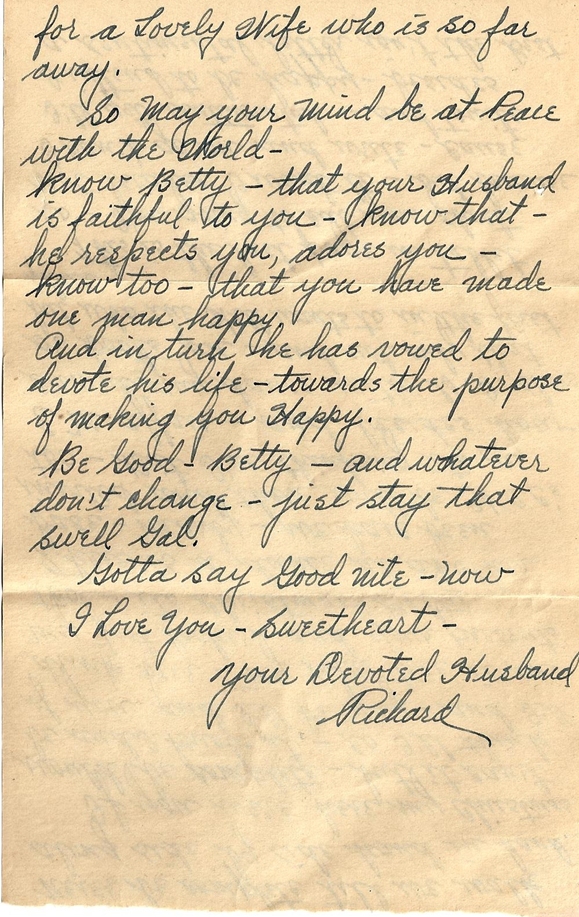 for a Lovely Wife who is so far
away.
So May your Mind be at Peace
with the World-
Know Betty - that your Husband
is faithful to you - Know that -
he respects you, adores you -
Know too - that you have made
one man happy
And in turn he has vowed to
devote his life - towards the purpose
of making you Happy.
Be Good - Betty - and whatever
don't change - just stay that
swell Gal.
Gotta say Good nite - now
I Love You - Sweetheart -
Your Devoted Husband
Richard